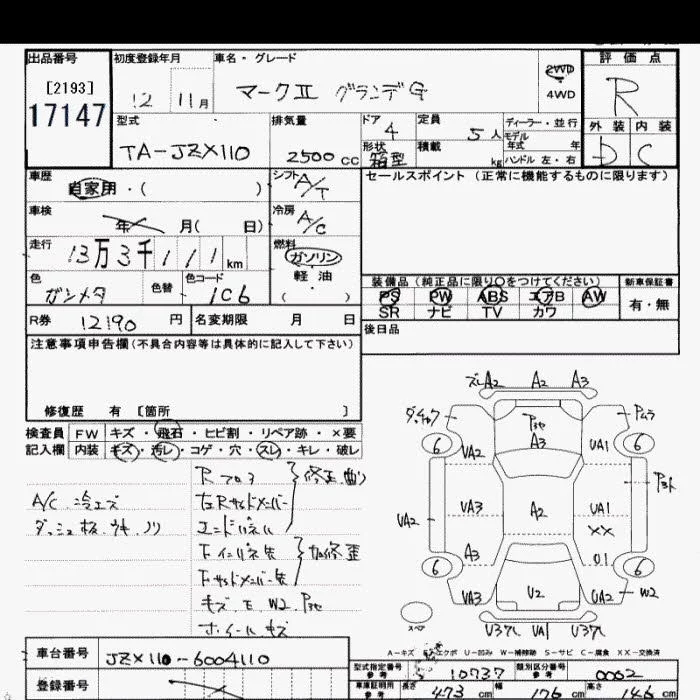 出品番号
[2193]
17147
初度登録年月
12 11月
車名・グレード
マークⅡ グランデG
2WD
4WD
評価点
R
外装 内装
D C
型式
TA-JZX110
排気量
2500 CC
ドア 4
形状 箱型
定員 5人
積載 kg
ディーラー・並行
モデル年式 年
ハンドル 左・右
車歴
自家用・( )
シフト A/T
車検
年 月( 日)
冷房 A/C
走行
13万3千111km
燃料
ガソリン
軽・油
( )
色
ガンメタ
色替
色コード
1C6
セールスポイント(正常に機能するものに限ります)
装備品(純正品に限り○をつけてください)
PS PW ABS エアB AW
SR ナビ TV カワ
新車保証書
有・無
R券 12190 円
名変期限 月 日
後日品
注意事項申告欄(不具合内容等は具体的に記入して下さい)
修復歴 有 [箇所 ]
検査員記入欄
FW キズ・飛石・ヒビ割・リペア跡・×要
内装 キズ・汚レ・コゲ・穴・スレ・キレ・破レ
A/C 冷エズ
R フロア
エンドパネル
キズ E W2
ホイールキズ
A2 A2 A3
A3
6 6
VA2 UA1
VA2 VA3 A2 UA1
XX
A3 01
6 6
VA3 U2 UA2 W2
スペア
UA1
A-キズ エクボ U-凹み W-補修跡 S-サビ C-腐食 XX-交換済
車台番号
JZX110-6004110
登録番号
型式指定番号 参考 10737
類別区分番号 参考 0062
車庫証明用 参考 長さ 473 cm 幅 176 cm 高さ 146 cm